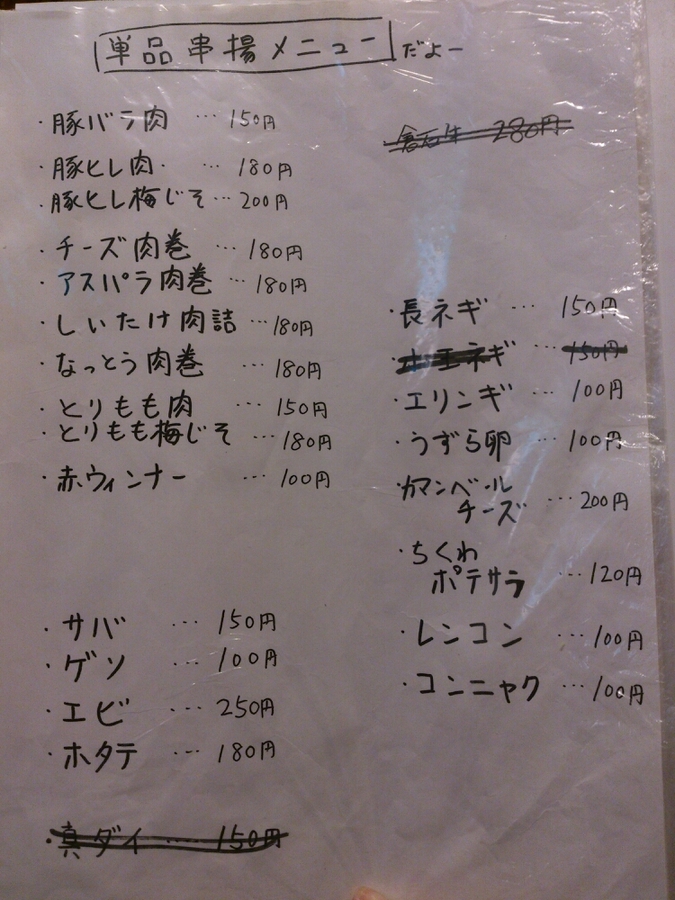 単品串揚メニュー だよー
・豚バラ肉 … 150円
・豚ヒレ肉 … 180円
・豚ヒレ梅じそ … 200円
・チーズ肉巻 … 180円
・アスパラ肉巻 … 180円
・しいたけ肉詰 … 180円
・なっとう肉巻 … 180円
・とりもも肉 … 150円
・とりもも梅じそ … 180円
・赤ウィンナー … 100円
・サバ … 150円
・ゲソ … 100円
・エビ … 250円
・ホタテ … 180円
・真ダイ … 150円
倉石牛 280円
・長ネギ … 150円
・ ネギ … 150円
・エリンギ … 100円
・うずら卵 … 100円
・カマンベール
チーズ … 200円
・ちくわ
ポテサラ … 120円
・レンコン … 100円
・コンニャク … 100円